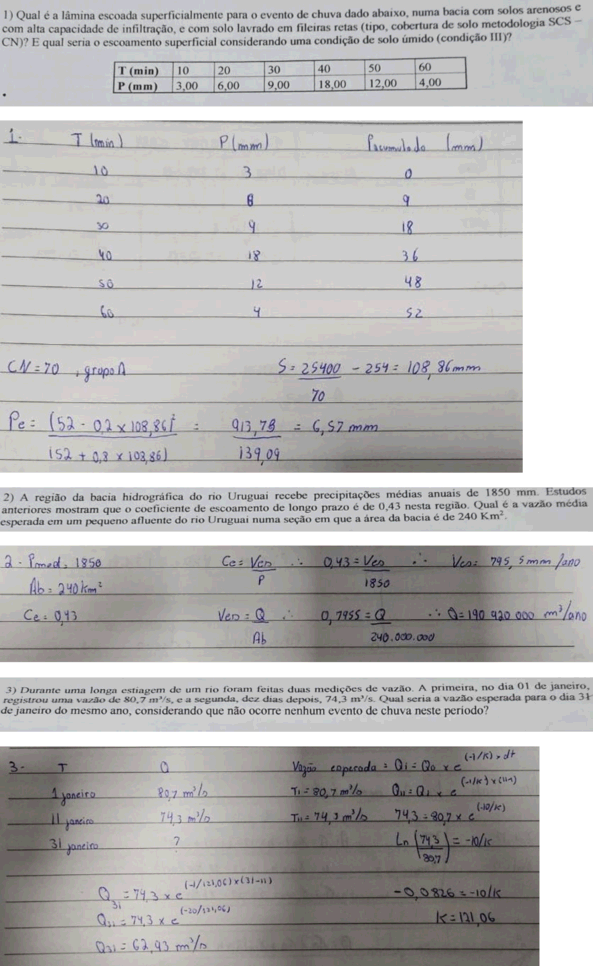 1) Qual é a lâmina escoada superficialmente para o evento de chuva dado abaixo, numa bacia com solos arenosos e
com alta capacidade de infiltração, e com solo lavrado em fileiras retas (tipo, cobertura de solo metodologia SCS –
CN)? E qual seria o escoamento superficial considerando uma condição de solo úmido (condição III)?
T (min) 10 20 30 40 50 60
P (mm) 3,00 6,00 9,00 18,00 12,00 4,00
1- T (min) P (mm) Pacumulado (mm)
10 3 0
20 6 9
30 9 18
40 18 36
50 12 48
60 4 52
CN = 70 , grupo A S = 25400 - 254 = 108,86 mm
70
Pe = (52 - 0,2 x 108,86)² = 913,78 = 6,57 mm
(52 + 0,8 x 108,86) 139,09
2) A região da bacia hidrográfica do rio Uruguai recebe precipitações médias anuais de 1850 mm. Estudos
anteriores mostram que o coeficiente de escoamento de longo prazo é de 0,43 nesta região. Qual é a vazão média
esperada em um pequeno afluente do rio Uruguai numa seção em que a área da bacia é de 240 Km².
2 - Pmed. 1850 Ce = Ves ∴ 0,43 = Ves ∴ Ves = 795,5 mm/ano
Ab = 240 km² P 1850
Ce = 0,43 Ves = Q ∴ 0,7955 = Q ∴ Q = 190 920 000 m³/ano
Ab 240.000.000
3) Durante uma longa estiagem de um rio foram feitas duas medições de vazão. A primeira, no dia 01 de janeiro,
registrou uma vazão de 80,7 m³/s, e a segunda, dez dias depois, 74,3 m³/s. Qual seria a vazão esperada para o dia 31
de janeiro do mesmo ano, considerando que não ocorre nenhum evento de chuva neste periodo?
3- T Q Vazão esperada = Qi = Qo x e (-1/K) x dt
1 janeiro 80,7 m³/s T1 = 80,7 m³/s Q11 = Q1 x e (-1/K) x (11-1)
11 janeiro 74,3 m³/s T11 = 74,3 m³/s 74,3 = 80,7 x e (-10/K)
31 janeiro ? Ln (74,3/80,7) = -10/K
Q31 = 74,3 x e (-1/121,06) x (31-11) -0,0826 = -10/K
Q31 = 74,3 x e (-20/121,06) K = 121,06
Q31 = 62,93 m³/s